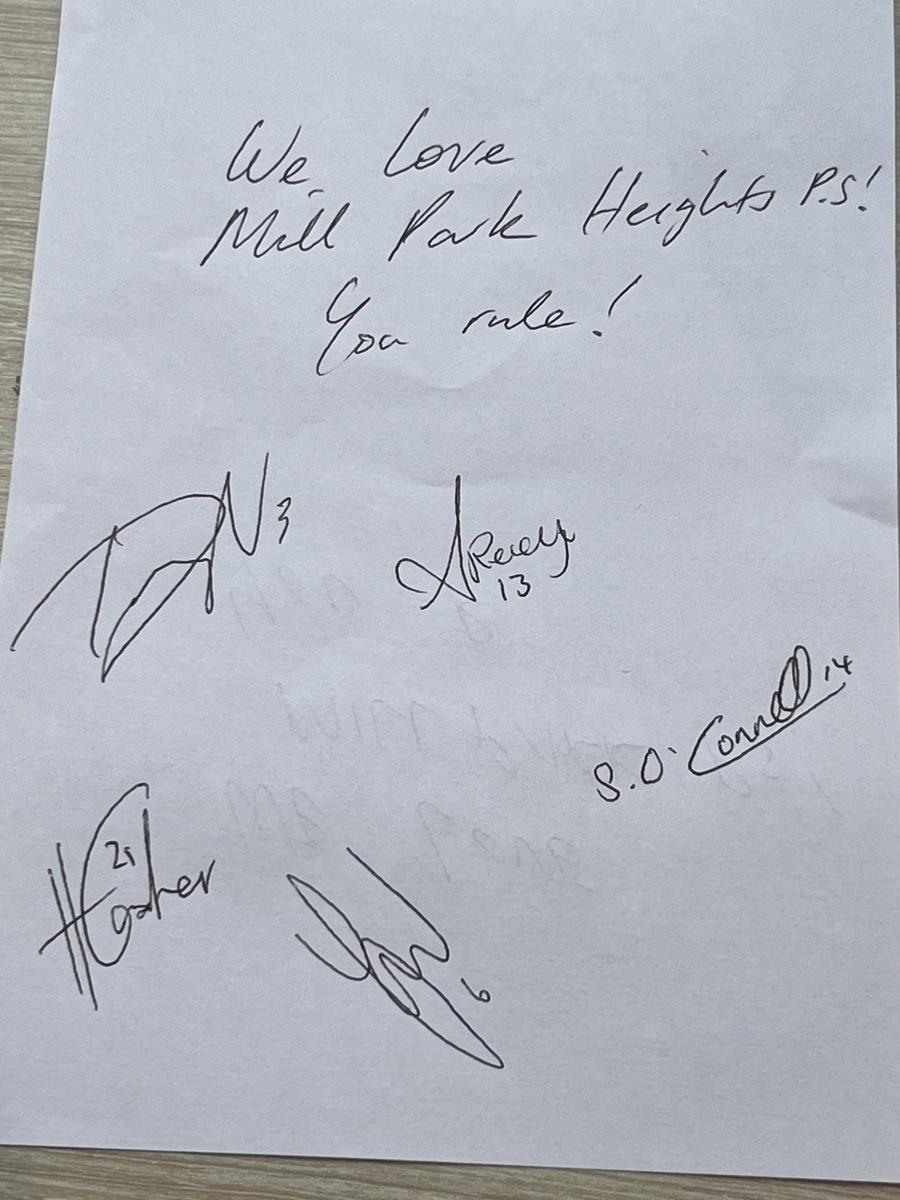 We Love
Mill Park Heights P.S!
You rule!
3
13
S. O'Connell 14
21
6